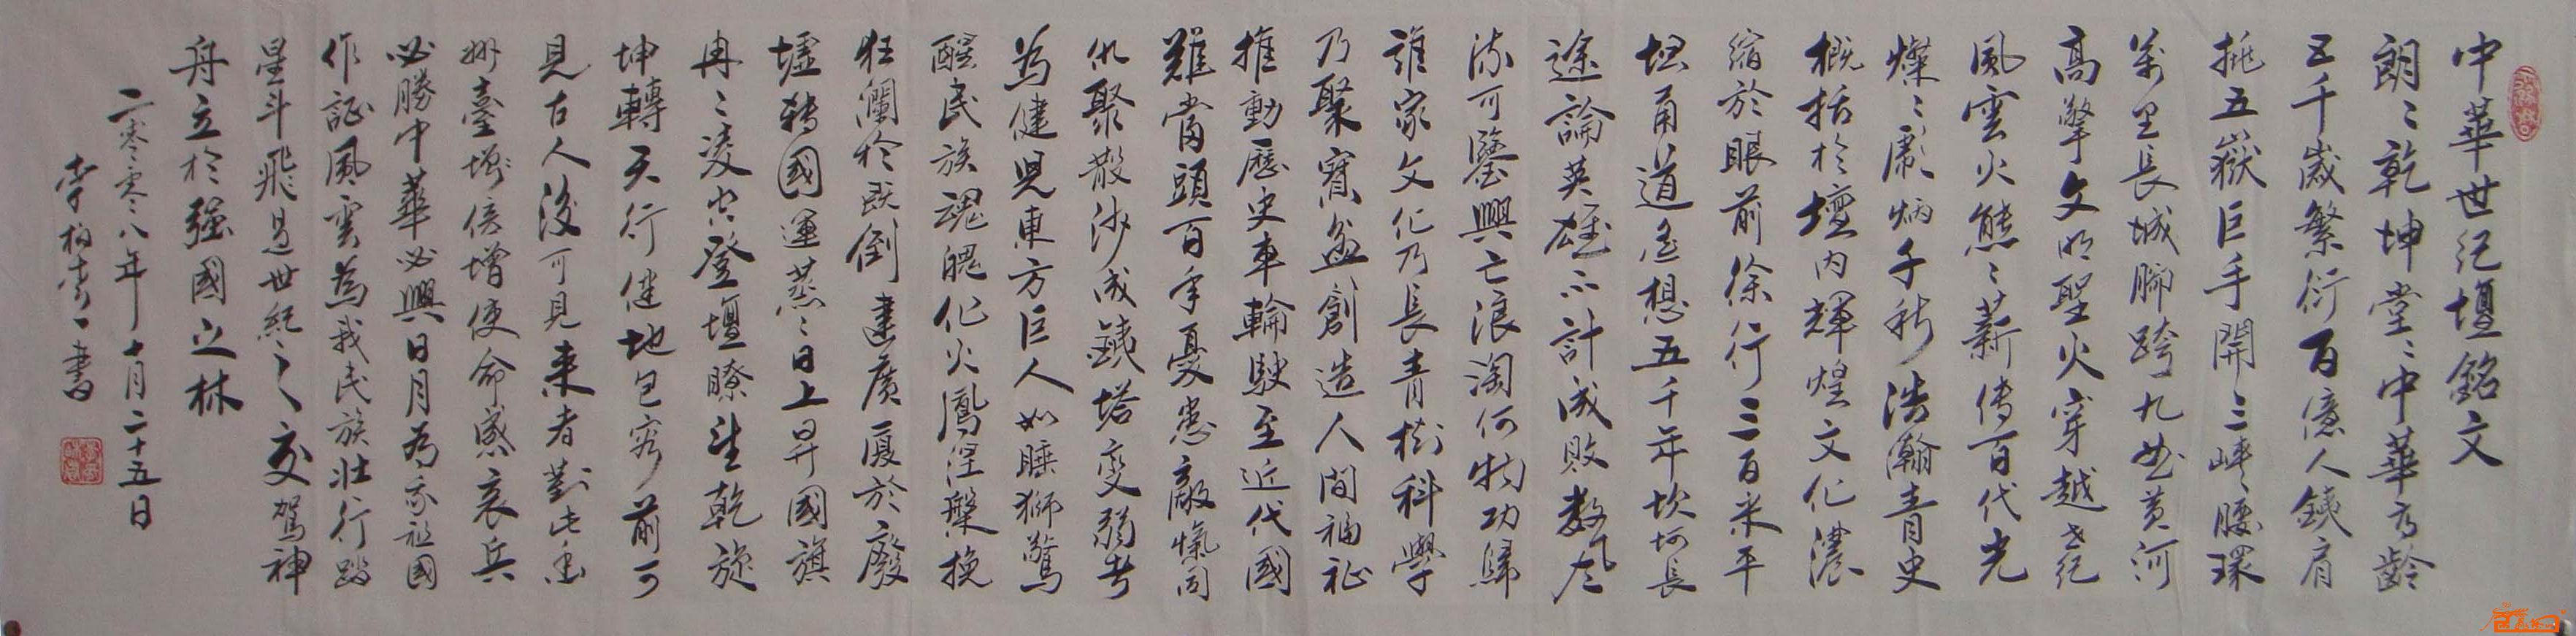 中華世紀壇銘文
朗々乾坤堂々中華方齡
五千歲繁衍百億人鐵肩
挑五嶽巨手開三峽腰環
萬里長城腳跨九曲黃河
高擎文明聖火穿越世紀
風雲火熊々薪傳百代光
燦々彪炳千秋浩瀚青史
概括於壇內輝煌文化濃
縮於眼前徐行三百米平
坦甬道遙想五千年坎坷長
途論英雄不計成敗數風
流可鑒興亡浪淘何物功歸
誰家文化乃長青樹科學
乃聚寶盆創造人間福祉
推動歷史車輪駛至近代國
難當頭百年憂患敵愾同
仇聚散沙成鐵塔變弱者
為健兒東方巨人如睡獅驚
醒民族魂魄化火鳳涅槃挽
狂瀾於既倒建廣廈於廢
墟轉國運蒸々日上昇國旗
冉々凌空登壇瞭望乾旋
坤轉天行健地包容前可
見古人後可見來者對此重
任倍增使命感哀兵
必勝中華必興日月為我祖國
作証風雲為我民族壯行踏
星斗飛過世紀之交駕神
舟立於強國之林
二零零八年十月二十五日
李柏青書